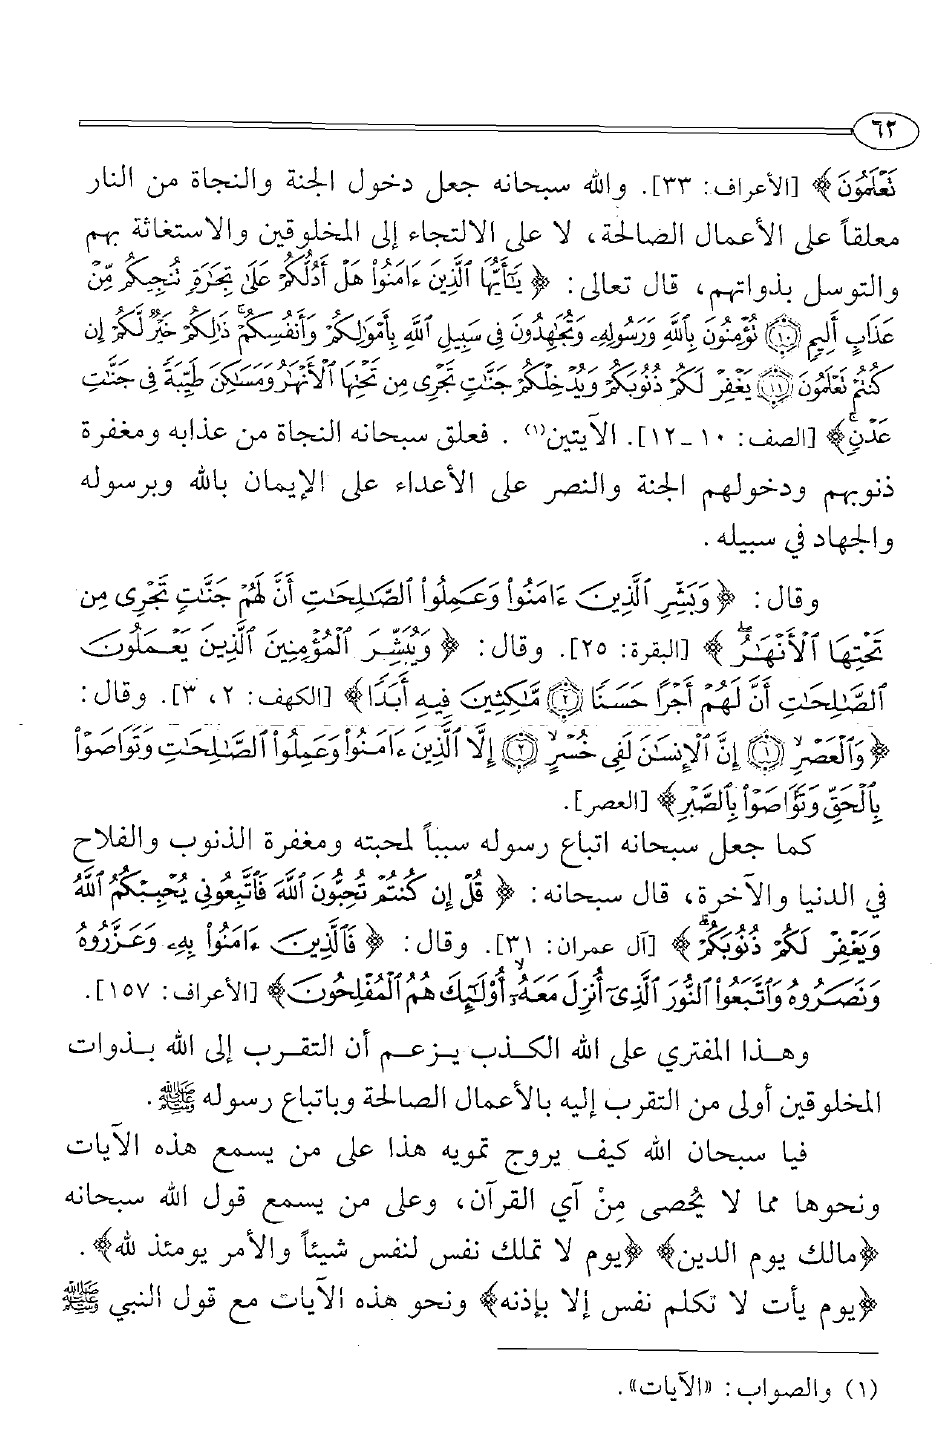 ٦٢
تَعْلَمُونَ﴾ [الأعراف: ٣٣]. والله سبحانه جعل دخول الجنة والنجاة من النار
معلقاً على الأعمال الصالحة، لا على الالتجاء إلى المخلوقين والاستغاثة بهم
والتوسل بذواتهم، قال تعالى: ﴿يَٰٓأَيُّهَا ٱلَّذِينَ ءَامَنُوا۟ هَلْ أَدُلُّكُمْ عَلَىٰ تِجَٰرَةٍ تُنجِيكُم مِّنْ
عَذَابٍ أَلِيمٍ ۝١٠ تُؤْمِنُونَ بِٱللَّهِ وَرَسُولِهِۦ وَتُجَٰهِدُونَ فِى سَبِيلِ ٱللَّهِ بِأَمْوَٰلِكُمْ وَأَنفُسِكُمْ ۚ ذَٰلِكُمْ خَيْرٌ لَّكُمْ إِن
كُنتُمْ تَعْلَمُونَ ۝١١ يَغْفِرْ لَكُمْ ذُنُوبَكُمْ وَيُدْخِلْكُمْ جَنَّٰتٍ تَجْرِى مِن تَحْتِهَا ٱلْأَنْهَٰرُ وَمَسَٰكِنَ طَيِّبَةً فِى جَنَّٰتِ
عَدْنٍ ۚ﴾ [الصف: ١٠ - ١٢]. الآيتين(١). فعلق سبحانه النجاة من عذابه ومغفرة
ذنوبهم ودخولهم الجنة والنصر على الأعداء على الإيمان بالله وبرسوله
والجهاد في سبيله.
وقال: ﴿وَبَشِّرِ ٱلَّذِينَ ءَامَنُوا۟ وَعَمِلُوا۟ ٱلصَّٰلِحَٰتِ أَنَّ لَهُمْ جَنَّٰتٍ تَجْرِى مِن
تَحْتِهَا ٱلْأَنْهَٰرُ ۖ﴾ [البقرة: ٢٥]. وقال: ﴿وَيُبَشِّرَ ٱلْمُؤْمِنِينَ ٱلَّذِينَ يَعْمَلُونَ
ٱلصَّٰلِحَٰتِ أَنَّ لَهُمْ أَجْرًا حَسَنًا ۝٢ مَّٰكِثِينَ فِيهِ أَبَدًا﴾ [الكهف: ٢، ٣]. وقال:
﴿وَٱلْعَصْرِ ۝١ إِنَّ ٱلْإِنسَٰنَ لَفِى خُسْرٍ ۝٢ إِلَّا ٱلَّذِينَ ءَامَنُوا۟ وَعَمِلُوا۟ ٱلصَّٰلِحَٰتِ وَتَوَاصَوْا۟
بِٱلْحَقِّ وَتَوَاصَوْا۟ بِٱلصَّبْرِ﴾ [العصر].
كما جعل سبحانه اتباع رسوله سبباً لمحبته ومغفرة الذنوب والفلاح
في الدنيا والآخرة، قال سبحانه: ﴿قُلْ إِن كُنتُمْ تُحِبُّونَ ٱللَّهَ فَٱتَّبِعُونِى يُحْبِبْكُمُ ٱللَّهُ
وَيَغْفِرْ لَكُمْ ذُنُوبَكُمْ ۗ﴾ [آل عمران: ٣١]. وقال: ﴿فَٱلَّذِينَ ءَامَنُوا۟ بِهِۦ وَعَزَّرُوهُ
وَنَصَرُوهُ وَٱتَّبَعُوا۟ ٱلنُّورَ ٱلَّذِىٓ أُنزِلَ مَعَهُۥٓ ۙ أُو۟لَٰٓئِكَ هُمُ ٱلْمُفْلِحُونَ﴾ [الأعراف: ١٥٧].
وهذا المفتري على الله الكذب يزعم أن التقرب إلى الله بذوات
المخلوقين أولى من التقرب إليه بالأعمال الصالحة وباتباع رسوله ﷺ.
فيا سبحان الله كيف يروج تمويه هذا على من يسمع هذه الآيات
ونحوها مما لا يُحصى مِنْ آي القرآن، وعلى من يسمع قول الله سبحانه
﴿مالك يوم الدين﴾ ﴿يوم لا تملك نفس لنفس شيئاً والأمر يومئذ لله﴾.
﴿يوم يأت لا تكلم نفس إلا بإذنه﴾ ونحو هذه الآيات مع قول النبي ﷺ
(١) والصواب: «الآيات».